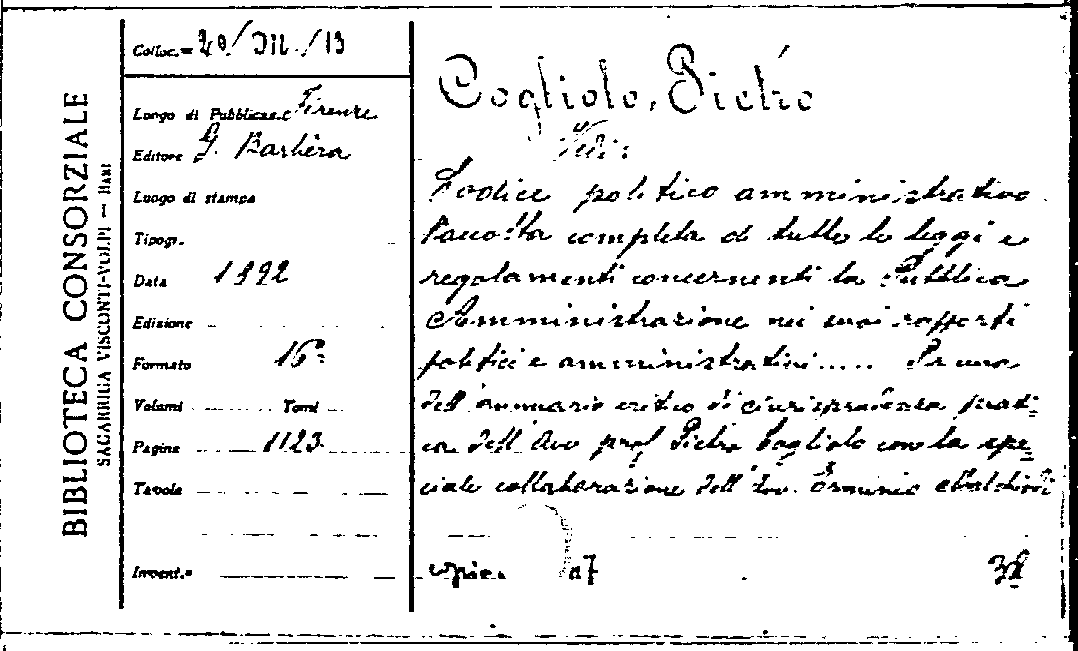 BIBLIOTECA CONSORZIALE
SAGARRIGA VISCONTI-VOLPI — BARI
Colloc.= 20/III./13
Luogo di Pubblicaz. Firenze
Editore G. Barbèra
Luogo di stampa
Tipogr.
Data 1892
Edizione
Formato 16°
Volumi Tomi
Pagine 1123
Tavole
Invent.=
Cogliolo, Pietro
Vedi:
Codice politico amministrativo.
Raccolta completa di tutte le leggi e
regolamenti concernenti la Pubblica
Amministrazione nei suoi rapporti
politici e amministrativi.....
dell'annuario critico di giurisprudenza prati=
ca dell'Avv prof Pietro Cogliolo con la spe=
ciale collaborazione dell'Avv. Erminio
copie